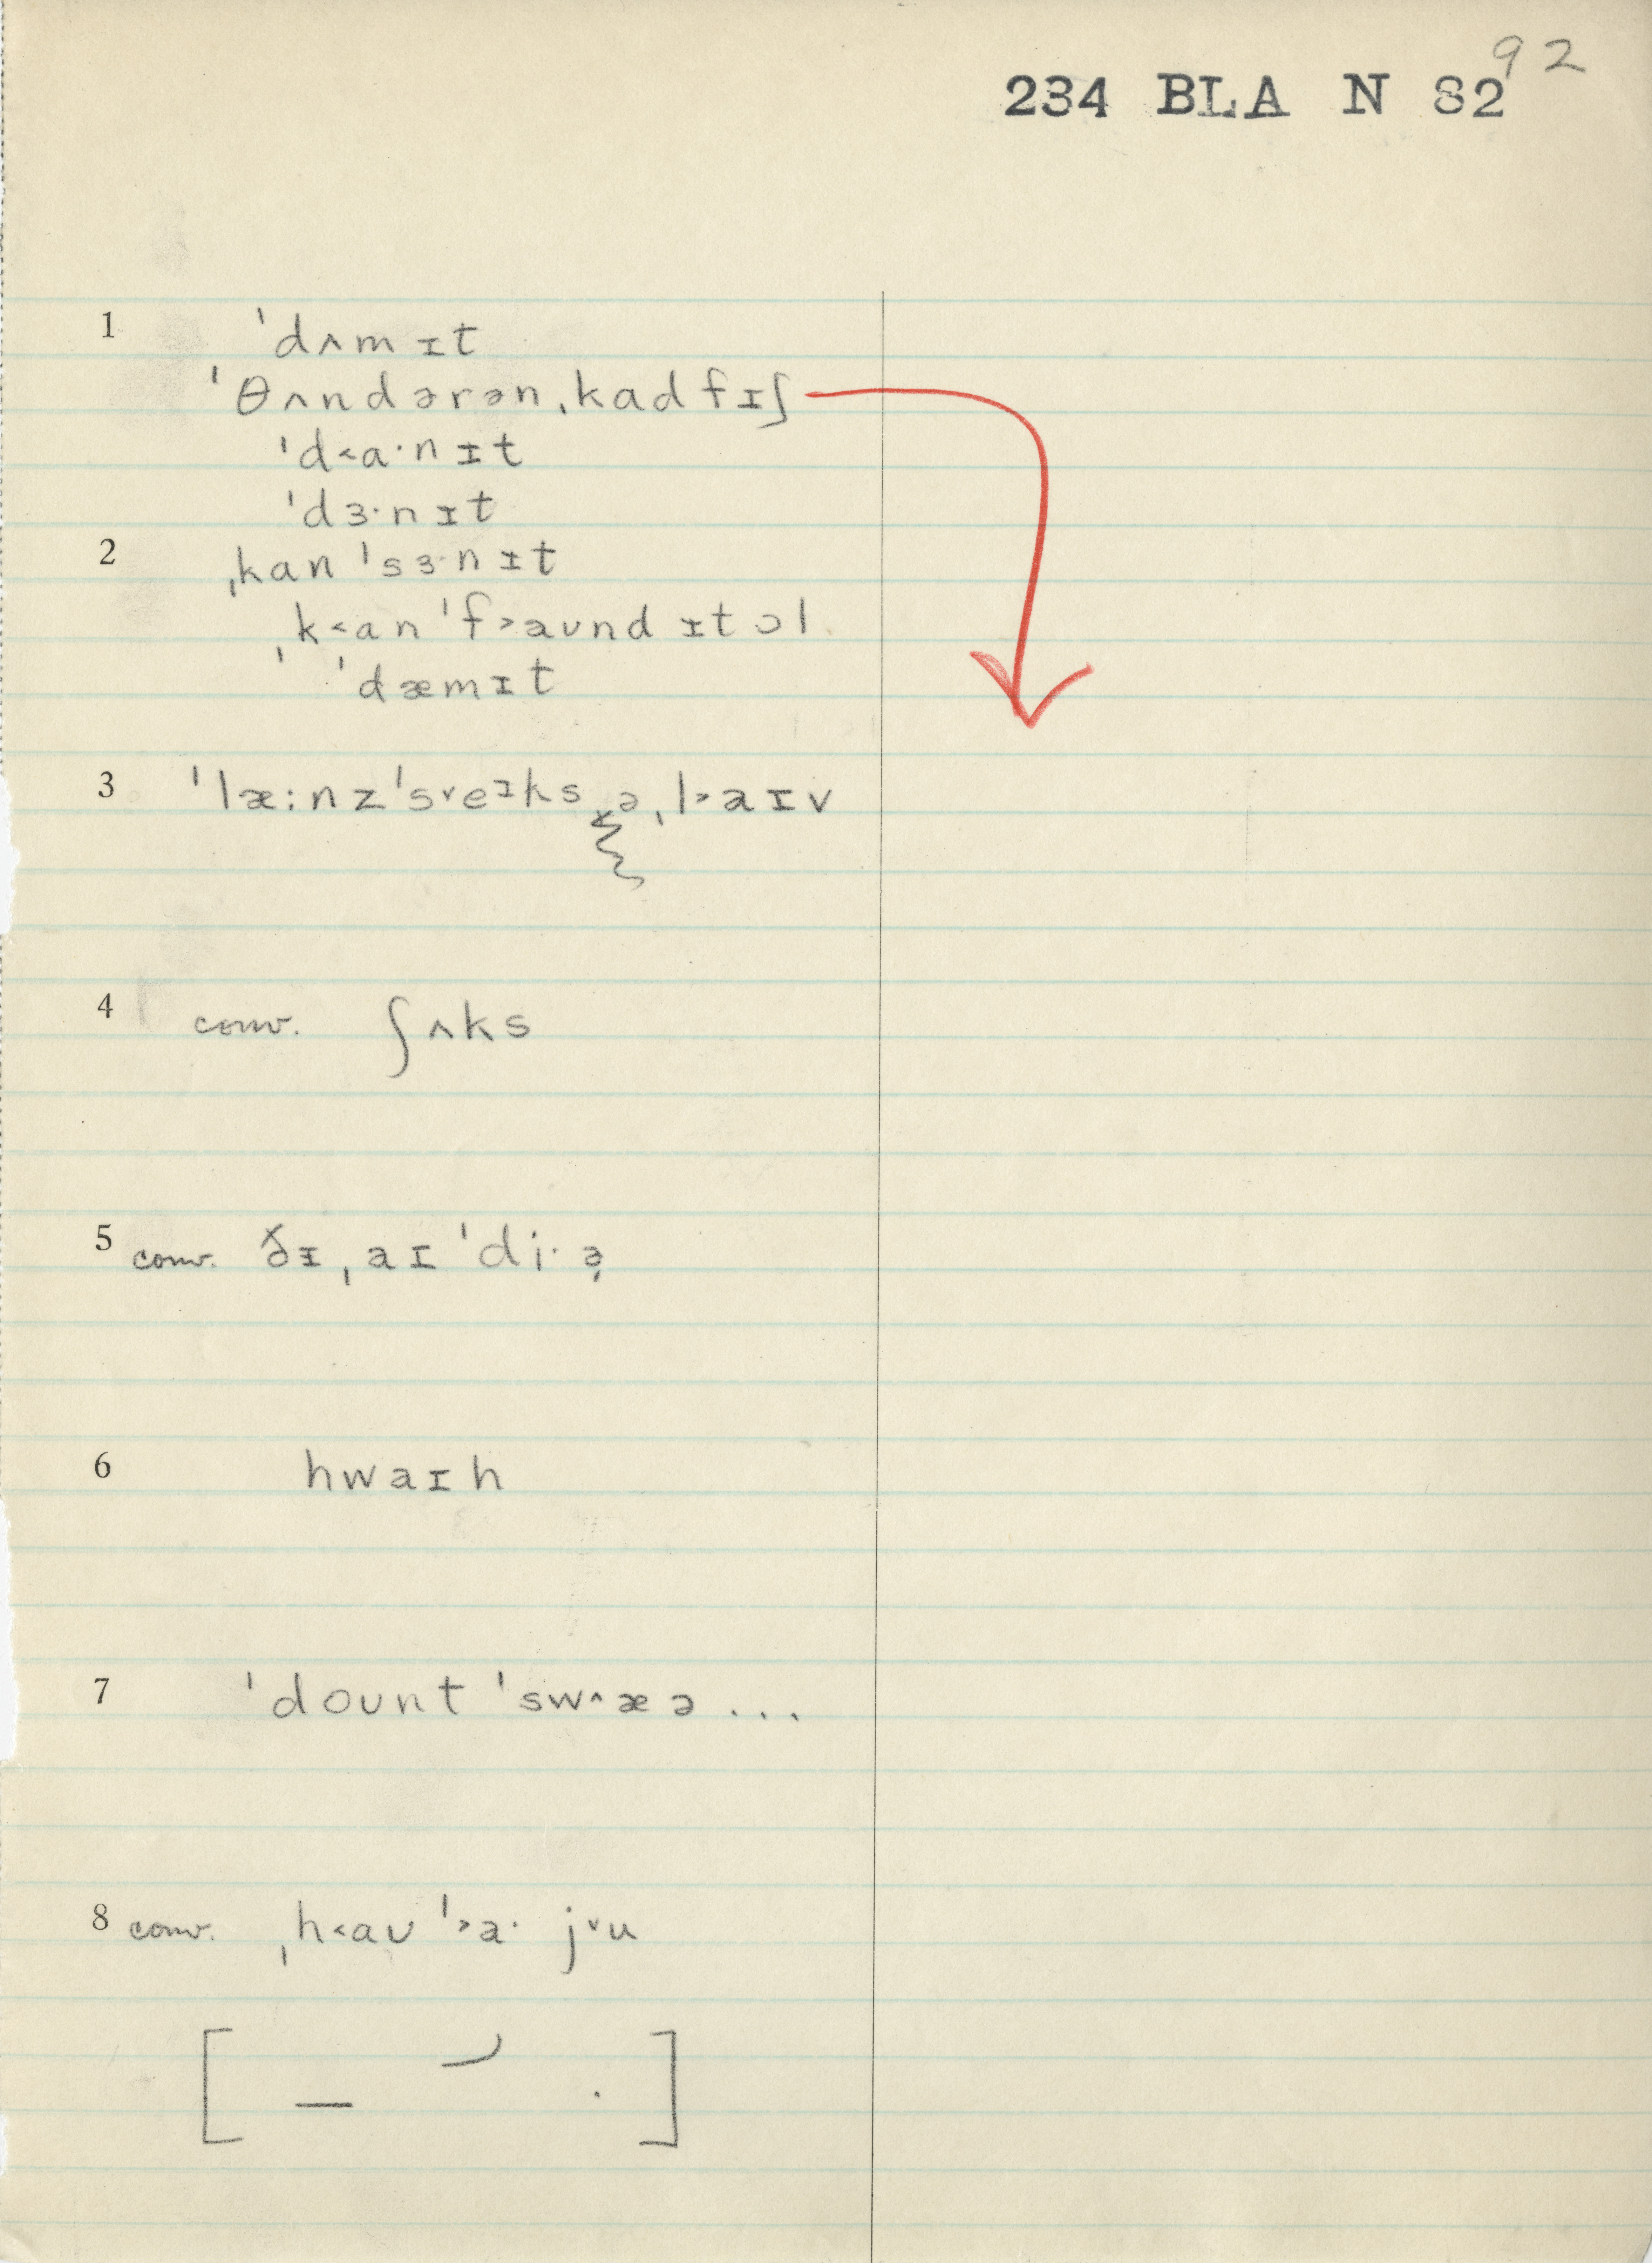 92
234 BLA N 82
1 ˈdʌmɪt
ˈθʌndərənˌkadfɪʃ
ˈd˂a·nɪt
ˈdɜ·nɪt
2 ˌkanˈsɜ·nɪt
ˌk˂anˈf˃aʊndɪtɔl
ˈdæmɪt
3 ˈlæ:nzˈs˅eɪks əˌl˃aɪv
4 conv. ʃʌks
5 conv. ðɪˌaɪˈdi·ə̣
6 hwaɪh
7 ˈdoʊntˈsw˄æə...
8 conv. ˌh˂aʊˈ˃a· j˅u